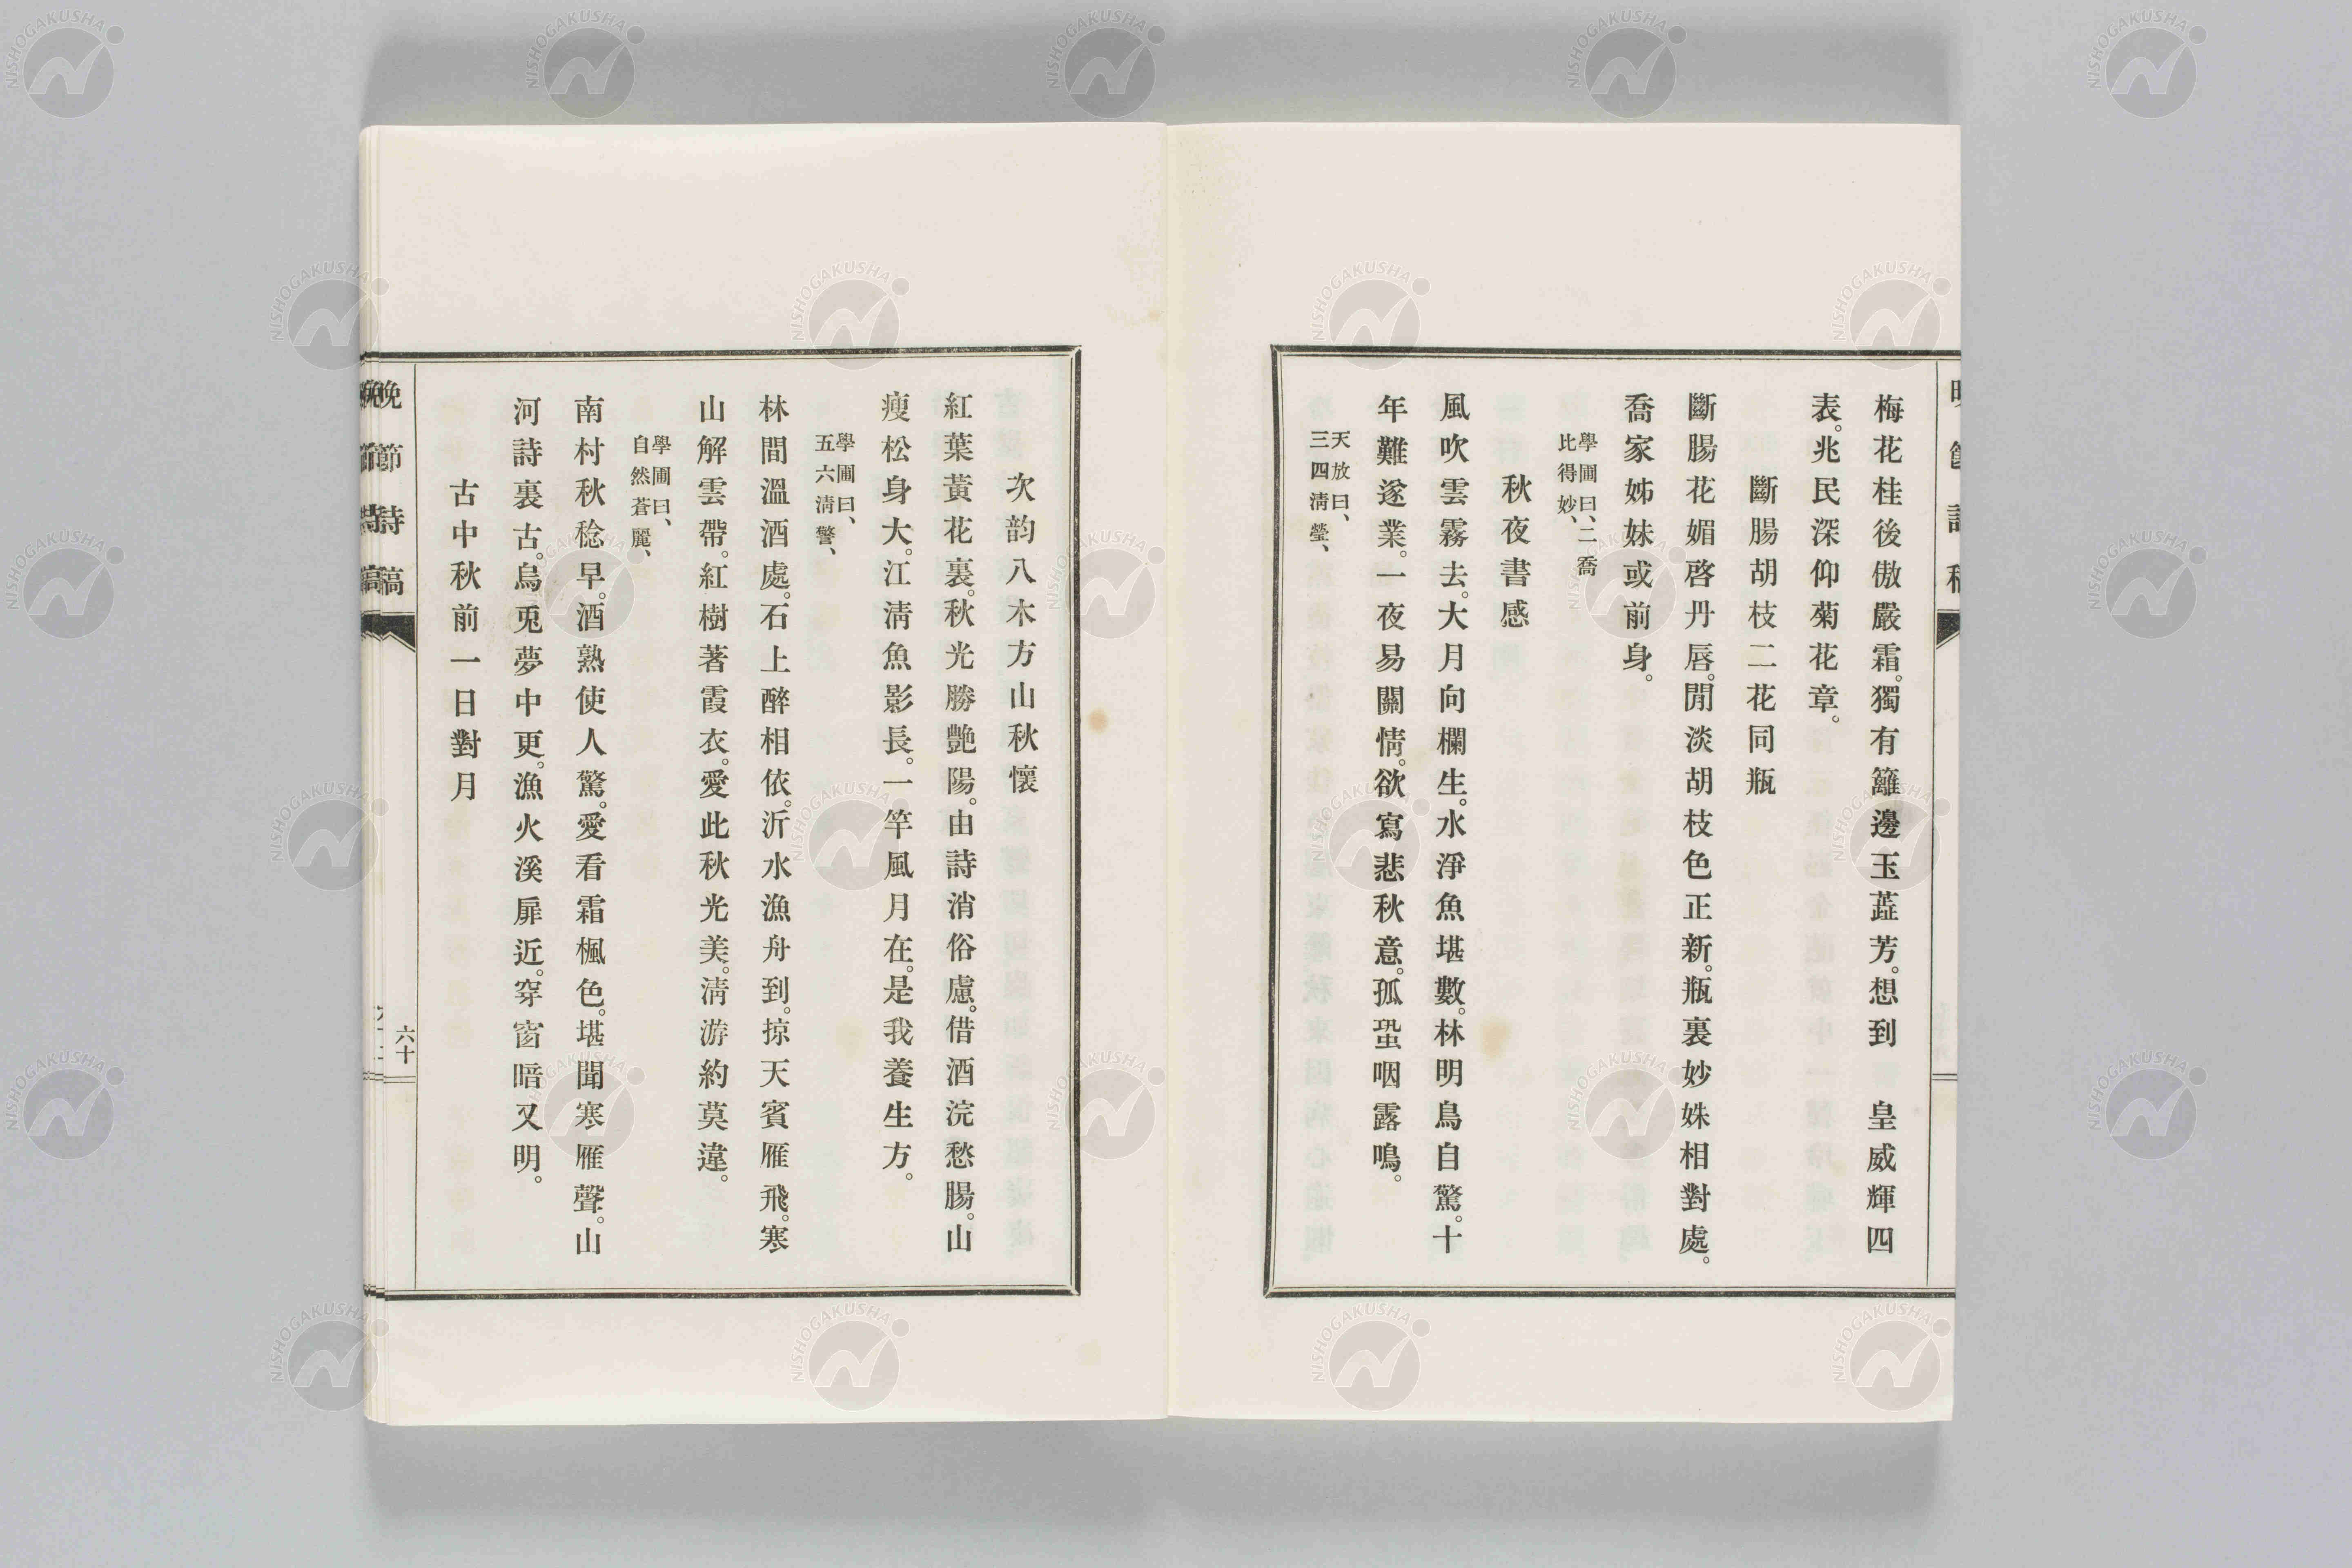 梅花桂後傲嚴霜。獨有籬邊玉蘂芳。想到　皇威輝四
表。兆民深仰菊花章。
斷腸胡枝二花同瓶
斷腸花媚啓丹唇。閒淡胡枝色正新。瓶裏妙姝相對處。
喬家姊妹或前身。
學圃曰、二喬
比得妙、
秋夜書感
風吹雲霧去。大月向欄生。水淨魚堪數。林明鳥自驚。十
年難遂業。一夜易關情。欲寫悲秋意。孤蛩咽露鳴。
天放曰、
三四淸瑩、
次韵八木方山秋懷
紅葉黃花裏。秋光勝艷陽。由詩消俗慮。借酒浣愁腸。山
瘦松身大。江淸魚影長。一竿風月在。是我養生方。
學圃曰、
五六淸警、
林間溫酒處。石上醉相依。沂水漁舟到。掠天賓雁飛。寒
山解雲帶。紅樹著霞衣。愛此秋光美。淸游約莫違。
學圃曰、
自然蒼麗、
南村秋稔早。酒熟使人驚。愛看霜楓色。堪聞寒雁聲。山
河詩裏古。烏兎夢中更。漁火溪扉近。穿窗暗又明。
古中秋前一日對月
晩節詩稿
六十
NISHOGAKUSHA